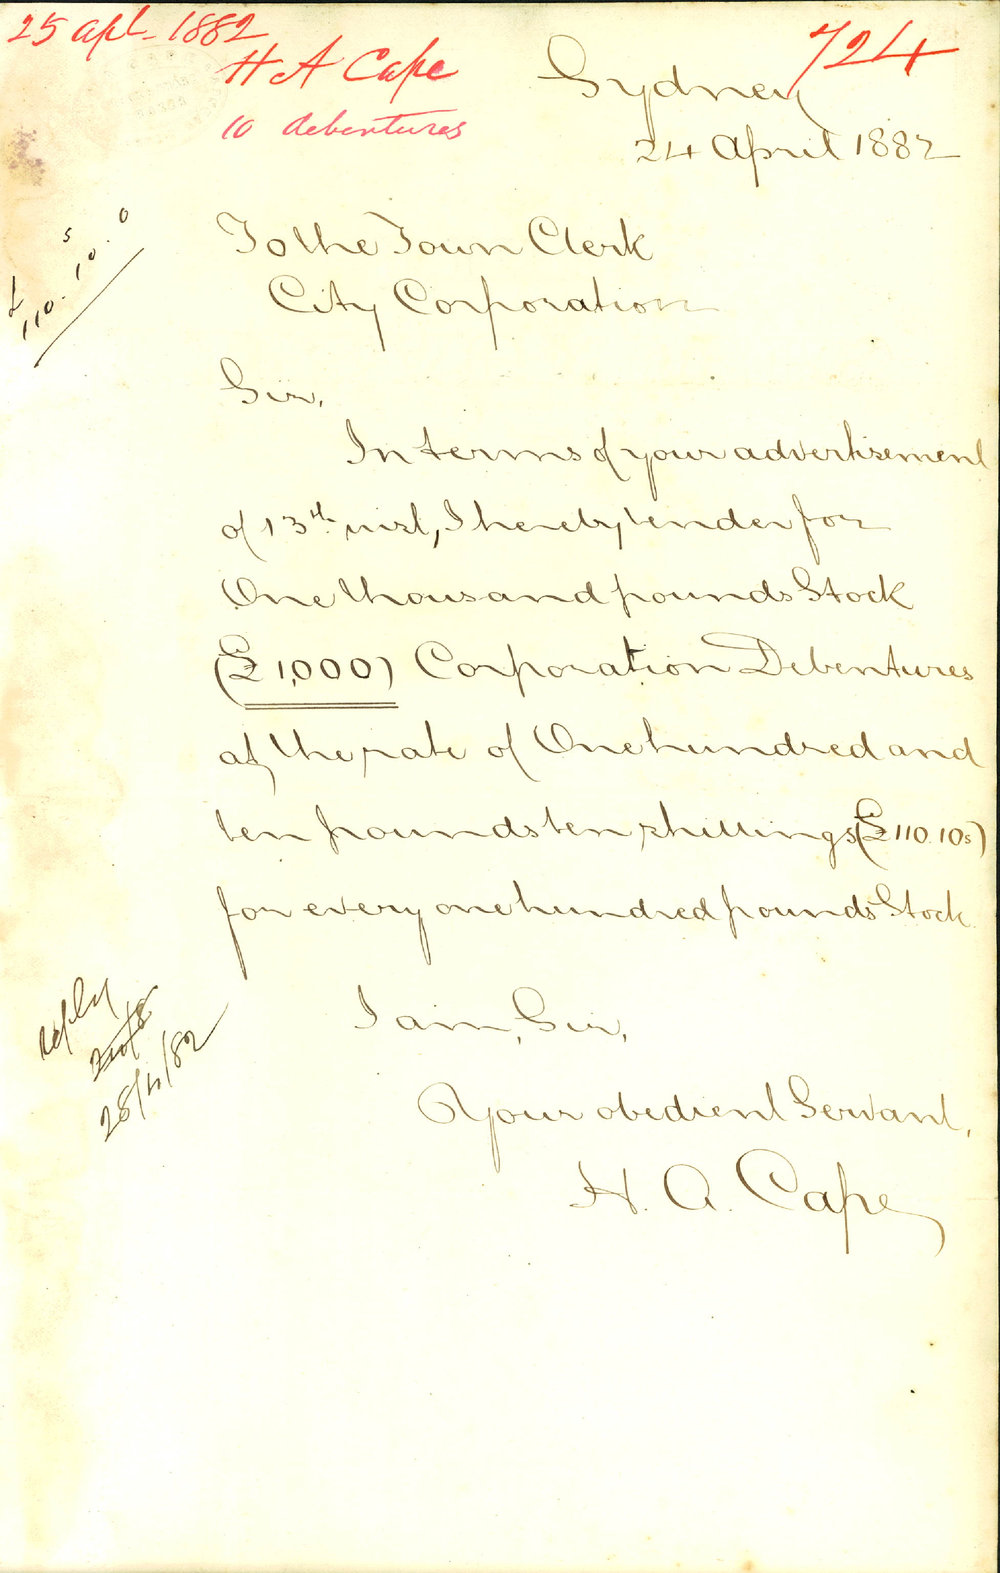 25 apl. 1882
H A Cape
10 debentures
724
Sydney
24 April 1882
£ s
110. 10. 0
To the Town Clerk
City Corporation
Sir,
In terms of your advertisement
of 13th inst, I hereby tender for
One thousand pounds Stock
(£1,000) Corporation Debentures
at the rate of One hundred and
ten pounds ten shillings (£110.10s)
for every one hundred pounds Stock
I am, Sir,
Your obedient Servant,
H. A. Cape
reply
28/4/82